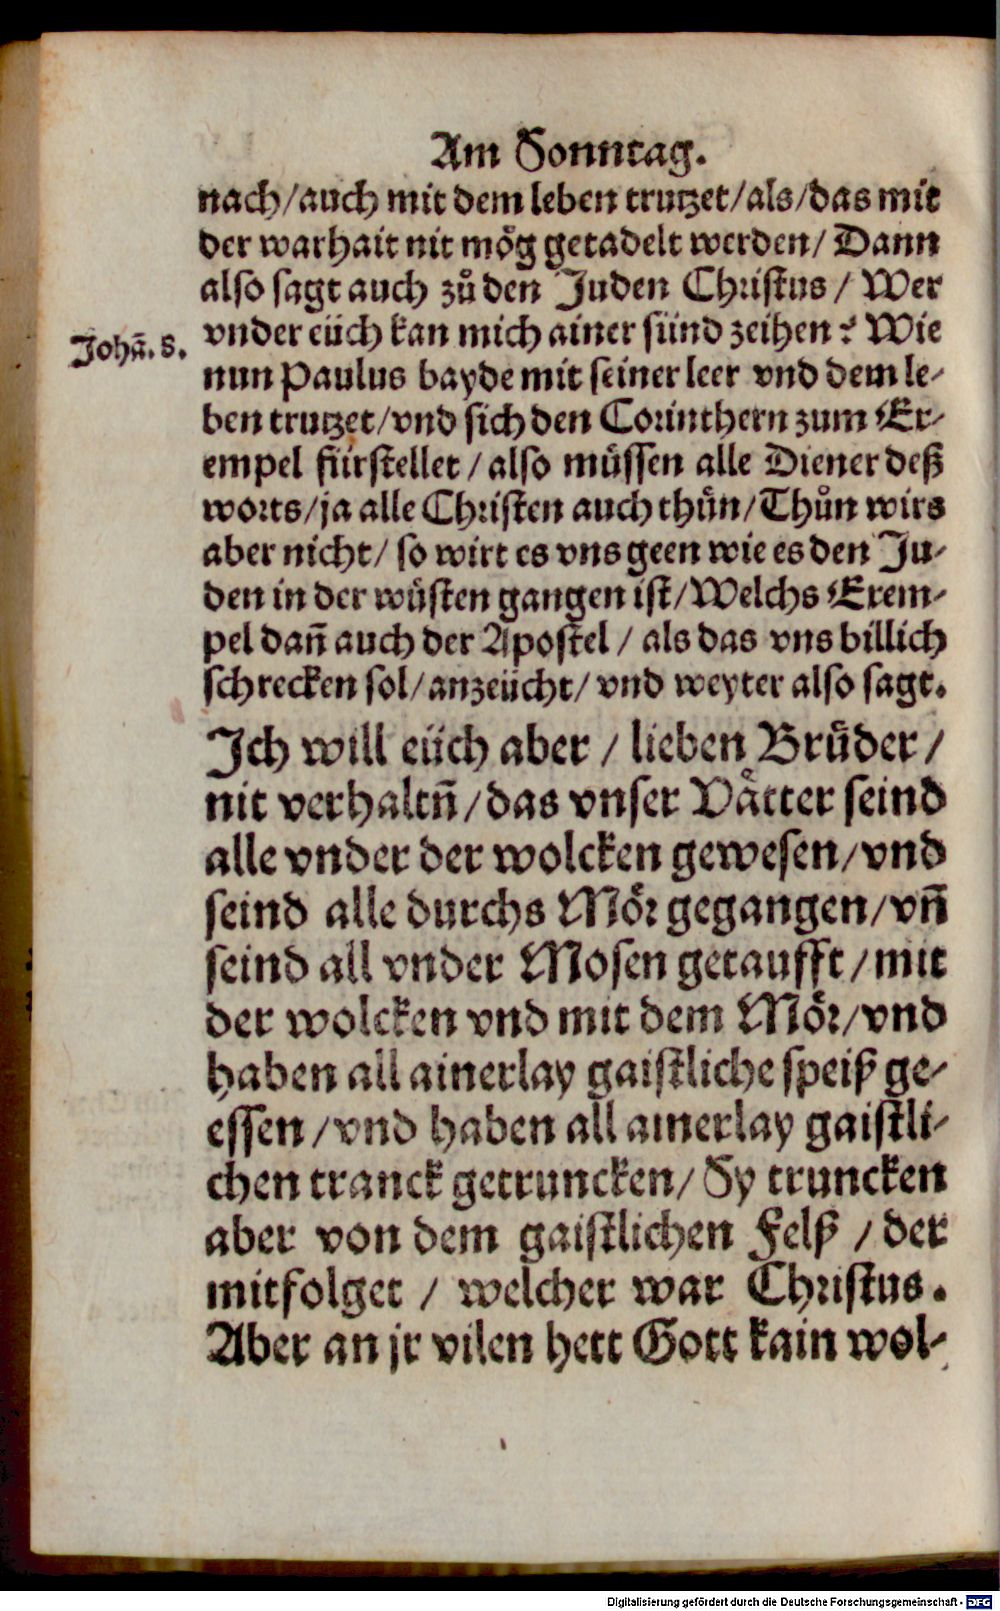 Am Sonntag.
nach/auch mit dem leben trutzet/als/das mit
der warhait nit mög getadelt werden/ Dann
also sagt auch zů den Juden Christus / Wer
Johañ. 8.
vnder eüch kan mich ainer sünd zeihen? Wie
nun Paulus bayde mit seiner leer vnd dem le-
ben trutzet/vnd sich den Corinthern zum Ex-
empel fürstellet / also müssen alle Diener deß
worts/ja alle Christen auch thůn/Thůn wirs
aber nicht/ so wirt es vns geen wie es den Ju-
den in der wüsten gangen ist/Welchs Exem-
pel dañ auch der Apostel / als das vns billich
schrecken sol/anzeücht/ vnd weyter also sagt.
Ich will eüch aber / lieben Brüder /
nit verhaltñ/das vnser Vätter seind
alle vnder der wolcken gewesen/vnd
seind alle durchs Mör gegangen/vñ
seind all vnder Mosen getaufft/mit
der wolcken vnd mit dem Mör/vnd
haben all ainerlay gaistliche speiß ge-
essen/vnd haben all ainerlay gaistli-
chen tranck getruncken/ Sy truncken
aber von dem gaistlichen Felß / der
mitfolget / welcher war Christus.
Aber an jr vilen hett Gott kain wol-
Digitalisierung gefördert durch die Deutsche Forschungsgemeinschaft - DFG